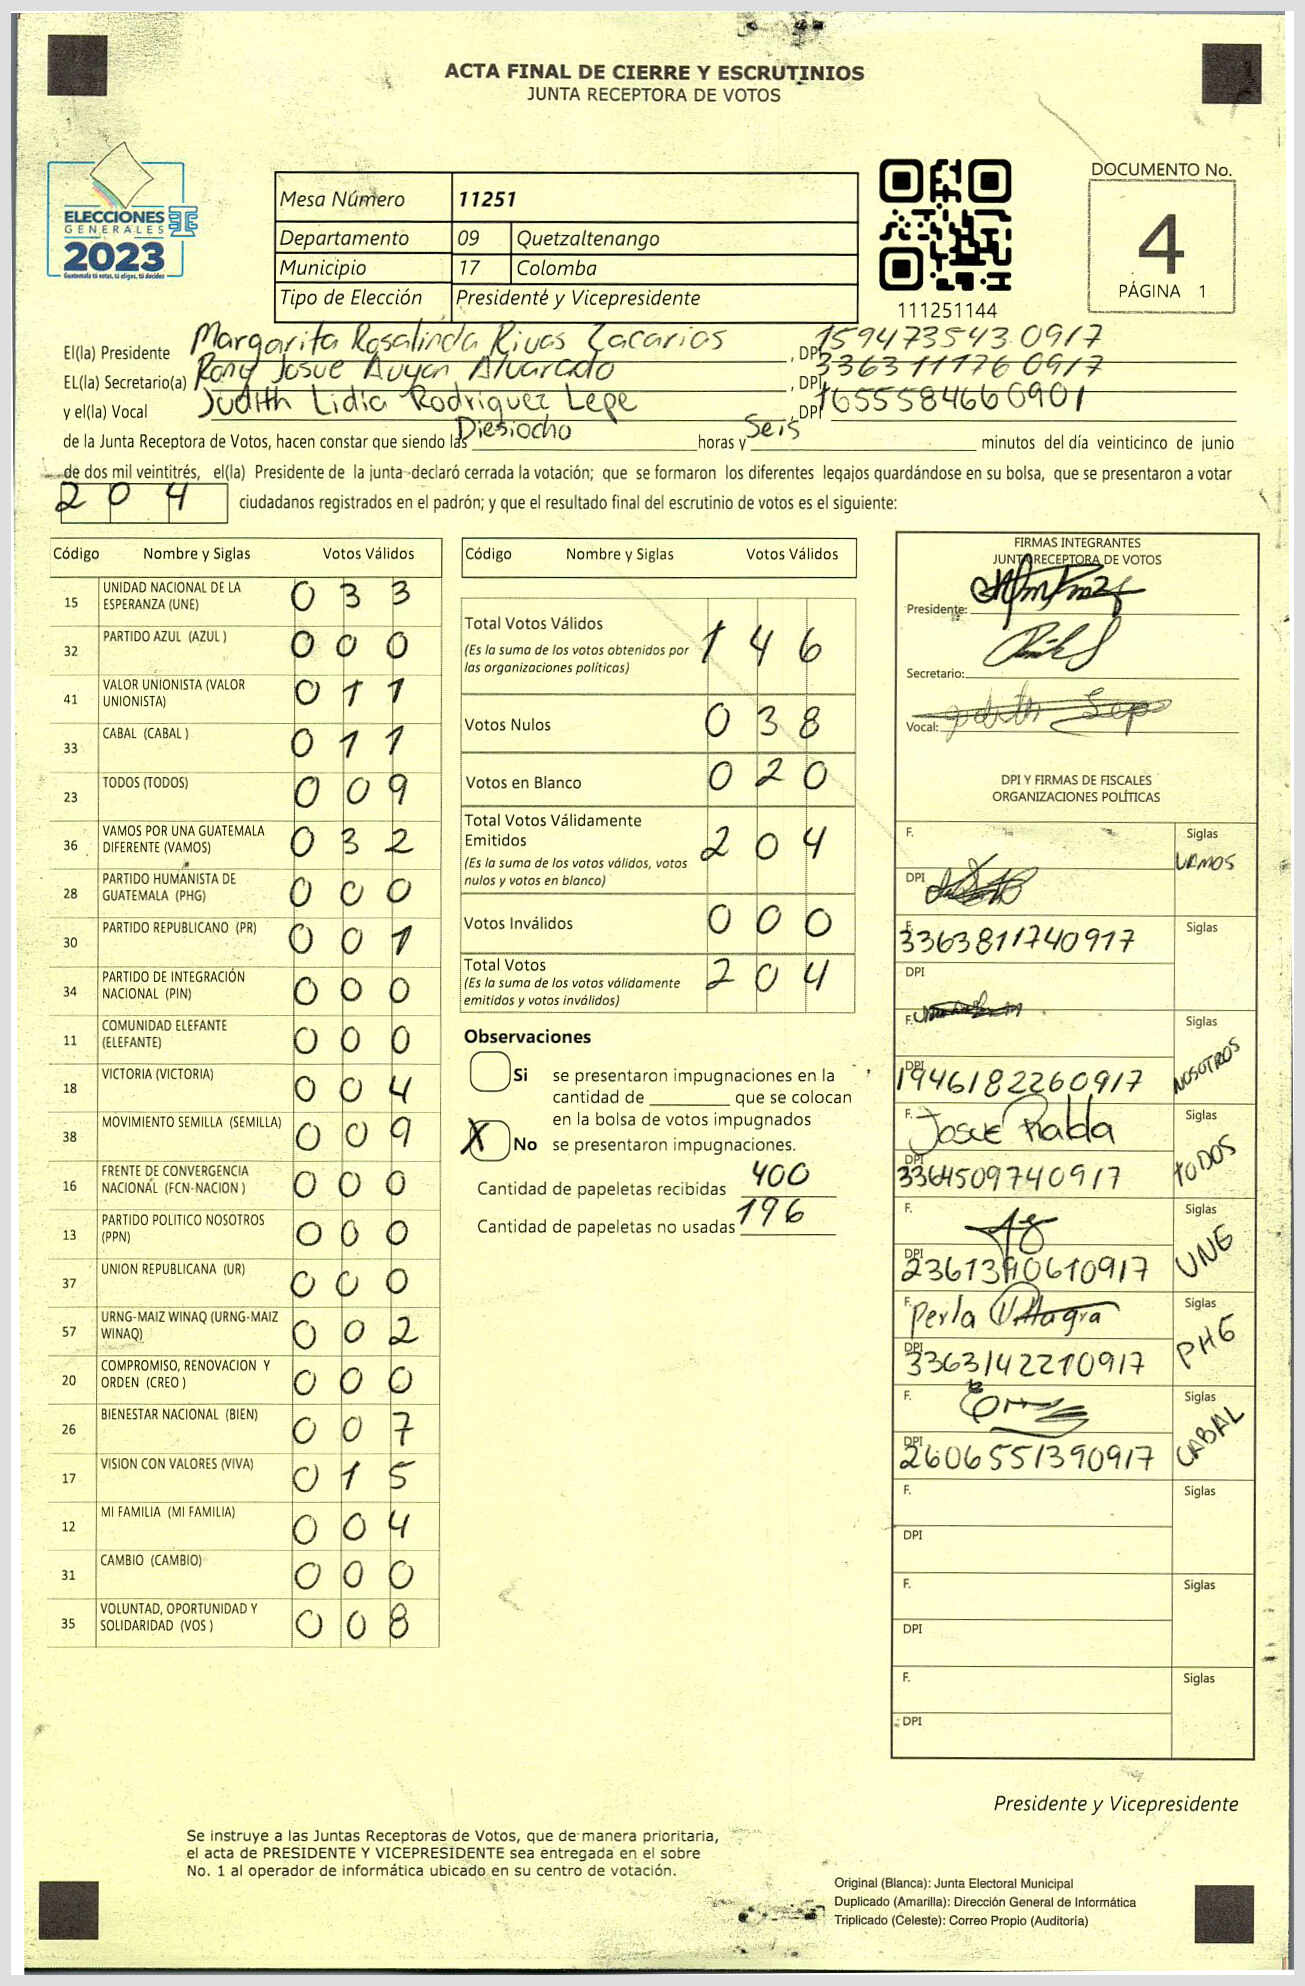 ACTA FINAL DE CIERRE Y ESCRUTINIOS
JUNTA RECEPTORA DE VOTOS
ELECCIONES
GENERALES
2023
Guatemala tú votas, tú eliges, tú decides
Mesa Número 11251
Departamento 09 Quetzaltenango
Municipio 17 Colomba
Tipo de Elección Presidente y Vicepresidente
111251144
DOCUMENTO No.
4
PÁGINA 1
El(la) Presidente Margarita Rosalinda Rivas Zacarias, DPI 1594735430917
EL(la) Secretario(a) Rony Josue Auyon Alvarado, DPI 3363111760917
y el(la) Vocal Judith Lidia Rodriguez Lepe, DPI 1655584660901
de la Junta Receptora de Votos, hacen constar que siendo las Diesiocho horas y Seis minutos del día veinticinco de junio
de dos mil veintitrés, el(la) Presidente de la junta declaró cerrada la votación; que se formaron los diferentes legajos guardándose en su bolsa, que se presentaron a votar
204 ciudadanos registrados en el padrón; y que el resultado final del escrutinio de votos es el siguiente:
Código Nombre y Siglas Votos Válidos
15 UNIDAD NACIONAL DE LA ESPERANZA (UNE) 033
32 PARTIDO AZUL (AZUL ) 000
41 VALOR UNIONISTA (VALOR UNIONISTA) 011
33 CABAL (CABAL ) 011
23 TODOS (TODOS) 009
36 VAMOS POR UNA GUATEMALA DIFERENTE (VAMOS) 032
28 PARTIDO HUMANISTA DE GUATEMALA (PHG) 000
30 PARTIDO REPUBLICANO (PR) 001
34 PARTIDO DE INTEGRACIÓN NACIONAL (PIN) 000
11 COMUNIDAD ELEFANTE (ELEFANTE) 000
18 VICTORIA (VICTORIA) 004
38 MOVIMIENTO SEMILLA (SEMILLA) 009
16 FRENTE DE CONVERGENCIA NACIONAL (FCN-NACION ) 000
13 PARTIDO POLITICO NOSOTROS (PPN) 000
37 UNION REPUBLICANA (UR) 000
57 URNG-MAIZ WINAQ (URNG-MAIZ WINAQ) 002
20 COMPROMISO, RENOVACION Y ORDEN (CREO ) 000
26 BIENESTAR NACIONAL (BIEN) 007
17 VISION CON VALORES (VIVA) 015
12 MI FAMILIA (MI FAMILIA) 004
31 CAMBIO (CAMBIO) 000
35 VOLUNTAD, OPORTUNIDAD Y SOLIDARIDAD (VOS ) 008
Código Nombre y Siglas Votos Válidos
Total Votos Válidos 146
(Es la suma de los votos obtenidos por
las organizaciones políticas)
Votos Nulos 038
Votos en Blanco 020
Total Votos Válidamente
Emitidos 204
(Es la suma de los votos válidos, votos
nulos y votos en blanco)
Votos Inválidos 000
Total Votos 204
(Es la suma de los votos válidamente
emitidos y votos inválidos)
Observaciones
Si se presentaron impugnaciones en la
cantidad de ________ que se colocan
en la bolsa de votos impugnados
X No se presentaron impugnaciones.
Cantidad de papeletas recibidas 400
Cantidad de papeletas no usadas 196
FIRMAS INTEGRANTES
JUNTA RECEPTORA DE VOTOS
Presidente:
Secretario:
Vocal:
DPI Y FIRMAS DE FISCALES
ORGANIZACIONES POLÍTICAS
F. Siglas
DPI VAMOS
F. 3363811740917 Siglas
DPI
F. Siglas
DPI 1946182260917 NOSOTROS
F. Josue Rabda Siglas
DPI 3364509740917 TODOS
F. Siglas
DPI UNE
F. Perla Siglas
DPI 3363142210917 PHG
F. Siglas
DPI 2606551390917 CABAL
F. Siglas
DPI
F. Siglas
DPI
F. Siglas
DPI
Presidente y Vicepresidente
Se instruye a las Juntas Receptoras de Votos, que de manera prioritaria,
el acta de PRESIDENTE Y VICEPRESIDENTE sea entregada en el sobre
No. 1 al operador de informática ubicado en su centro de votación.
Original (Blanca): Junta Electoral Municipal
Duplicado (Amarilla): Dirección General de Informática
Triplicado (Celeste): Correo Propio (Auditoría)